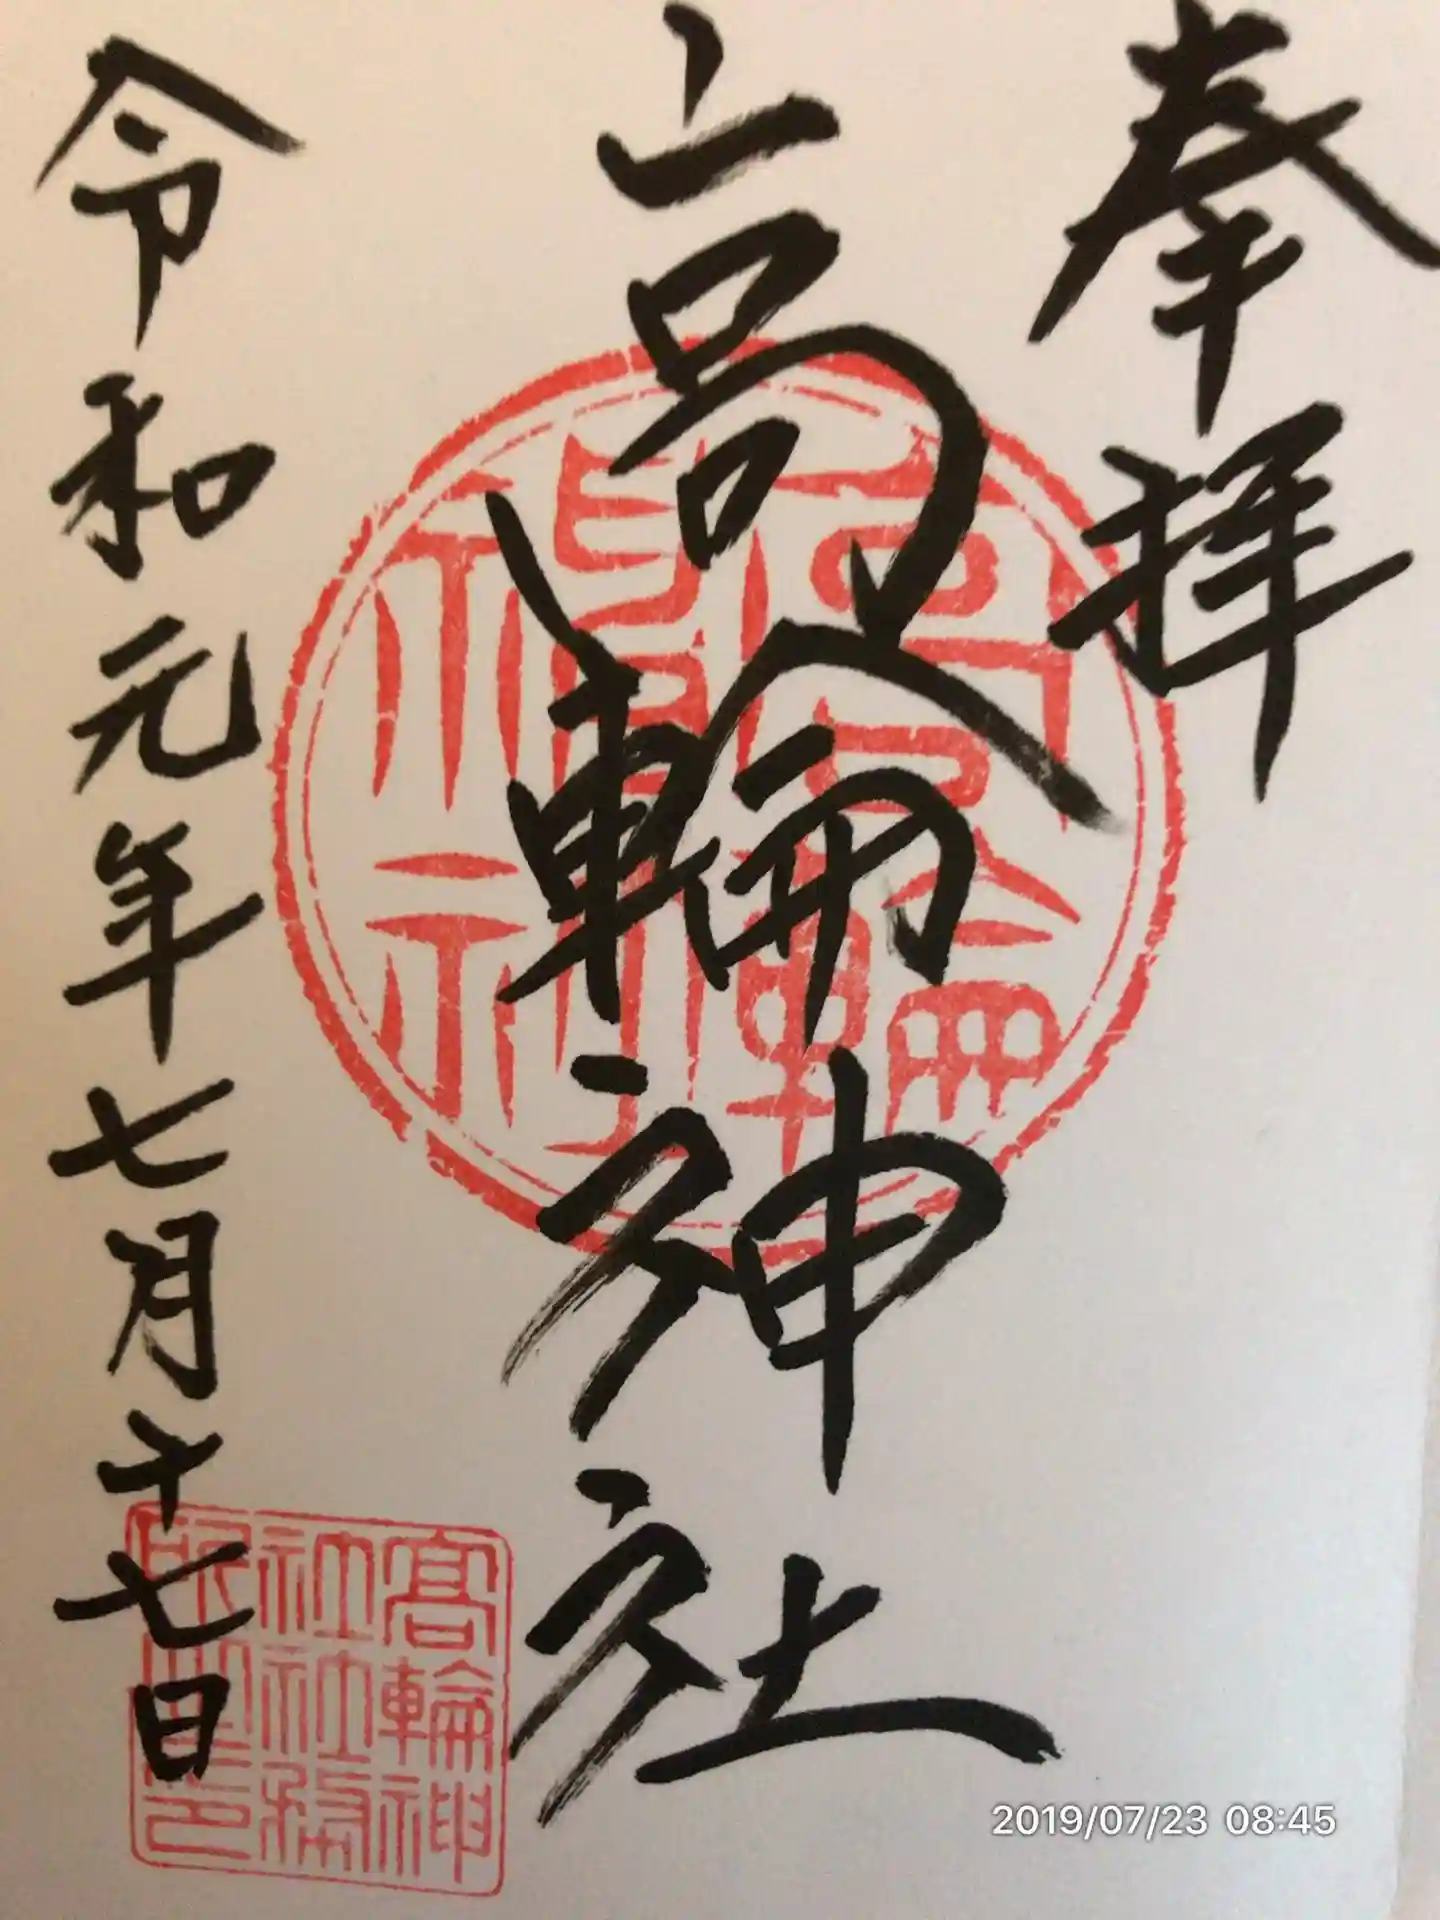 奉拝
高輪神社
令和元年七月十七日
高輪神
社社務
所之印
2019/07/23 08:45